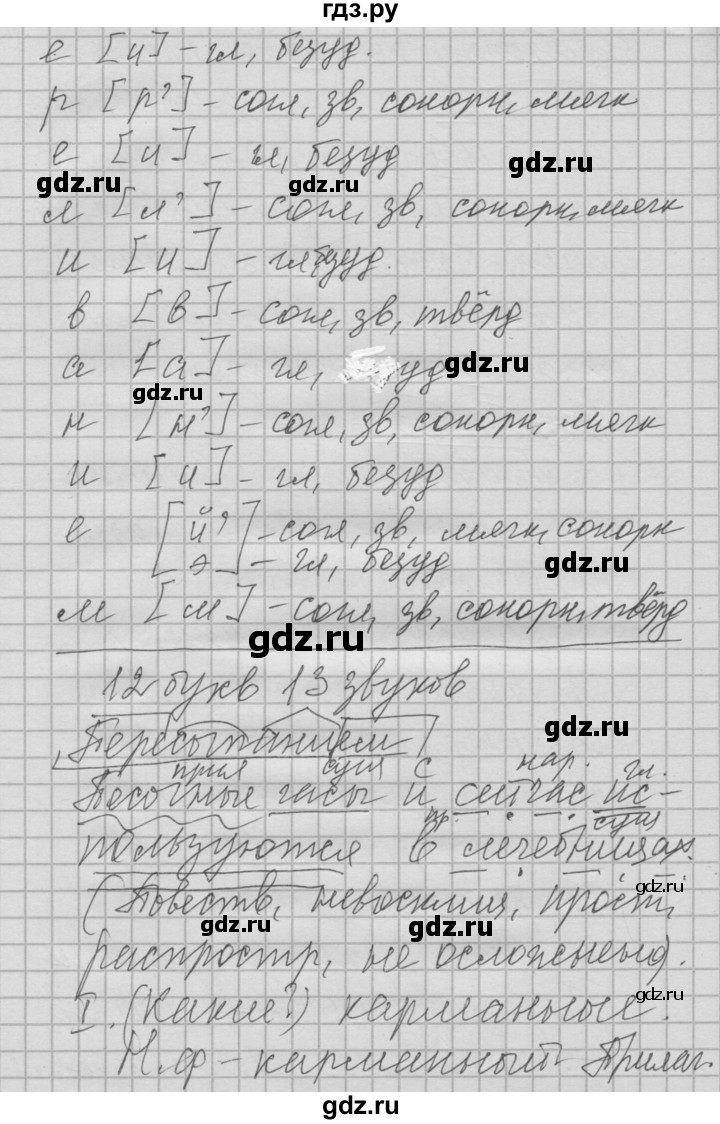 гдз.ру
е [и] - гл, безуд.
р [р'] - согл, зв, сонорн, мягк
е [и] - гл, безуд
gdz.ru
gdz.ru
gdz.ru
л [л'] - согл, зв, сонорн, мягк
и [и] - гл, безуд.
в [в] - согл, зв, твёрд
а [а] - гл, уд
gdz.ru
gdz.ru
н [н'] - согл, зв, сонорн, мягк
и [и] - гл, безуд
е [й' - согл, зв, мягк, сонорн
э] - гл, безуд
gdz.ru
м [м] - согл, зв, сонорн, твёрд
gdz.ru
12 букв 13 звуков
gdz.ru
Пересыпанием
прил сущ с нар. гл.
Песочные часы и сейчас ис-
пр. сущ
пользуются в лечебницах.
gdz.ru
(Повеств, невосклиц, прост,
gdz.ru
gdz.ru
распростр, не осложнено).
gdz.ru
I. (Какие?) карманные.
Н.ф - карманный Прилаг.
gdz.ru